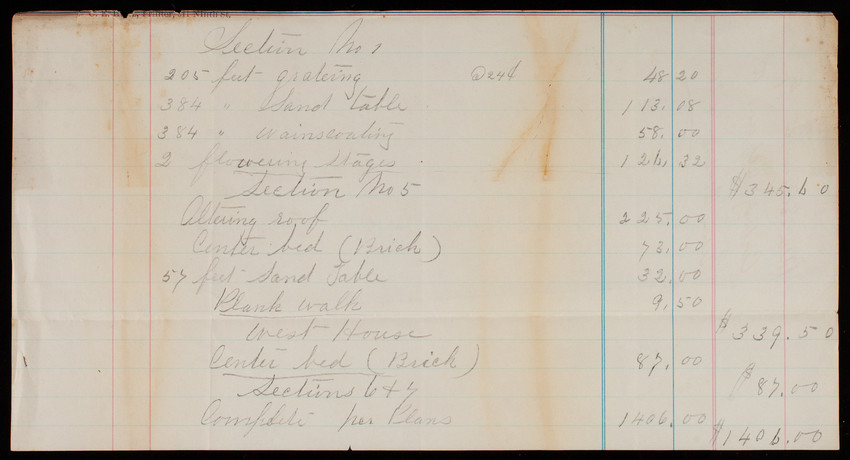 Printer, 511 Ninth St.
Section No 1
205 feet grateing @24¢ 48 20
384 " Sand table 113.08
384 " Wainscoating 58.00
2 flowering Stages. 126.32
$345.60
Section No 5
Altering roof 225.00
Center bed (Brick) 73.00
57 feet Sand Table 32.00
Plank walk 9.50
$339.50
West House
Center bed (Brick) 87.00
$87.00
Sections 6 & 7
Complete per Plans 1406.00
$1406.00